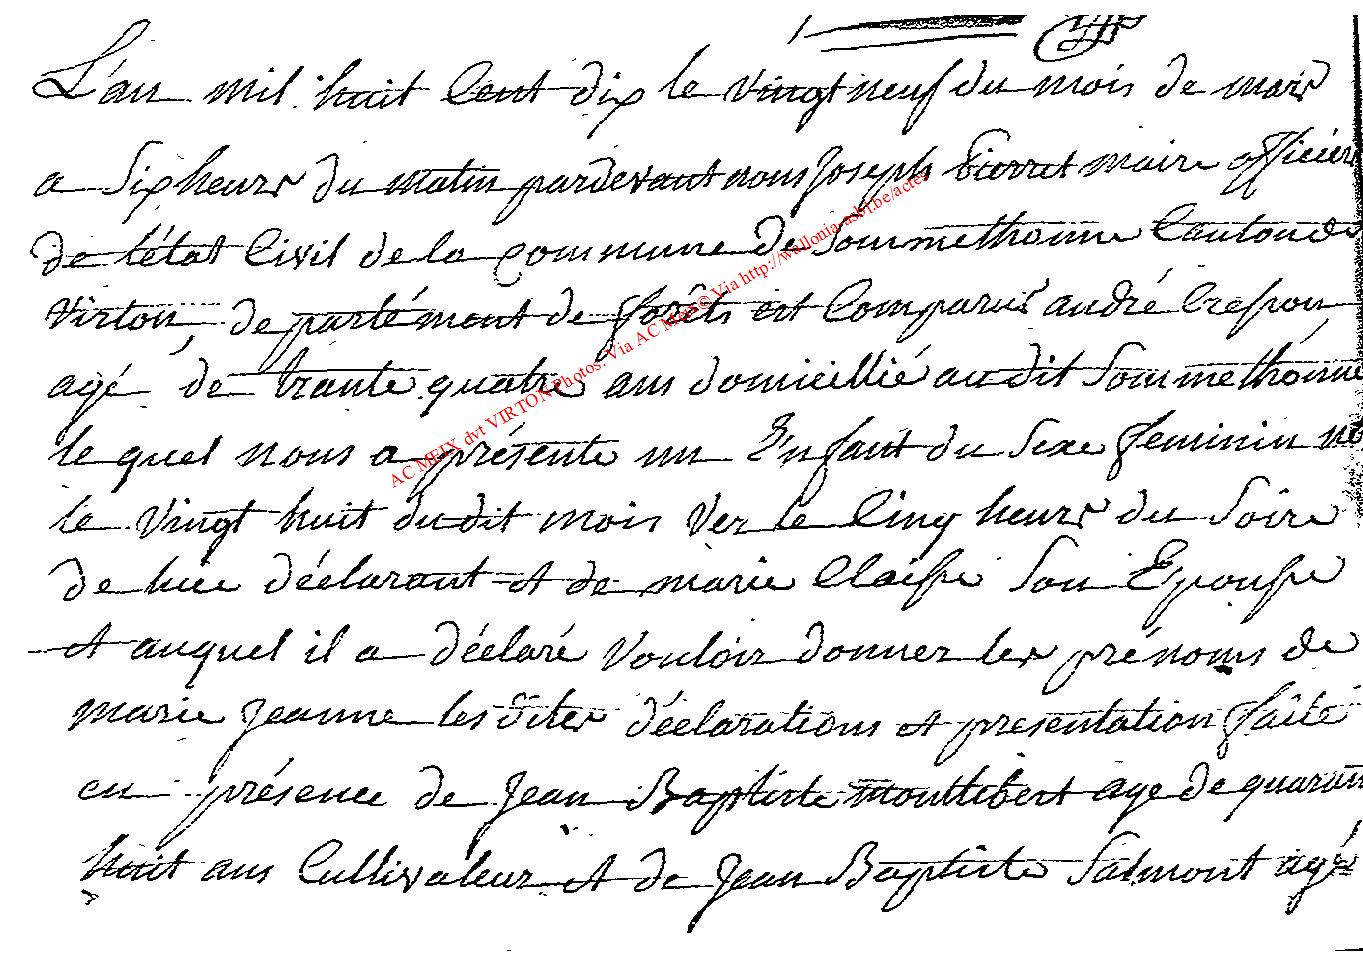 L'an mil huit Cent dix le vingt neuf du mois de mars
a Six heurs du matin pardevant nous Joseph Pierret maire officier
de l'état Civil de la commune de Sommethonne Canton de
Virton, departément de forêts est Comparus andré Crespon
agé de trante quatre ans domicillié au dit Sommethonne
le quel nous a présente un Enfant du Sexe feminin né
le Vingt huit du dit mois Ver le Cinq heurs du Soire
de luie déclarant et de marie Claisse Son Epousse
et auquel il a déclaré Vouloir donner les prénoms de
marie Jeanne les dites déclarations et presentation faite
en présence de Jean Baptiste age de quarant
huit ans Cultivateur et de Jean Baptiste Salmont agé
AC MEIX dvt VIRTON Photos: Via AC Meix© Via http://wallonia-asbl.be/actes